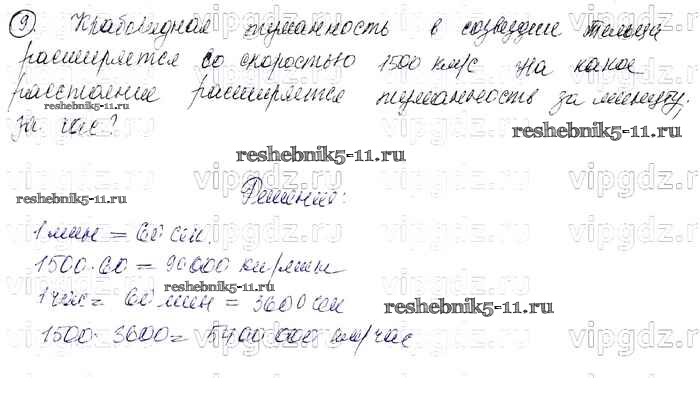 9. Крабовидная туманность в созвездии Тельца
расширяется со скоростью 1500 км/с На какое
расстояние расширяется туманность за минуту;
за час?
Решение:
1 мин = 60 сек.
1500·60 = 90000 км/мин
1 час = 60 мин = 3600 сек
1500·3600 = 5400 000 км/час
reshebnik5-11.ru
reshebnik5-11.ru
reshebnik5-11.ru
reshebnik5-11.ru
reshebnik5-11.ru
reshebnik5-11.ru
vipgdz.ru
vipgdz.ru
vipgdz.ru
vipgdz.ru